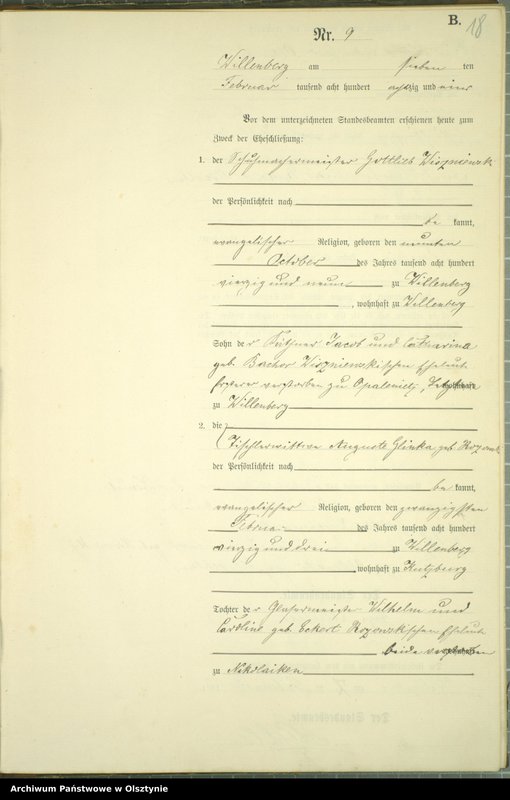 B.
18
Nr. 9
Willenberg am sieben ten
Februar tausend acht hundert achtzig und vier
Vor dem unterzeichneten Standesbeamten erschienen heute zum
Zweck der Eheschließung:
1. der Schuhmachermeister Gottlieb
der Persönlichkeit nach
be kannt,
evangelischer Religion, geboren den neunten
October des Jahres tausend acht hundert
vierzig und neun zu Willenberg
, wohnhaft zu Willenberg
Sohn der Käthner Jacob und Catharina
geb. Bachor Eheleute
ersterer verstorben zu Opaleniec, Letztere
zu Willenberg
2. die
Tischlerwittwe Auguste Glinka geb.
der Persönlichkeit nach
be kannt,
evangelischer Religion, geboren den zwanzigsten
Februar des Jahres tausend acht hundert
vierzig und drei zu Willenberg
, wohnhaft zu Kutzburg
Tochter der Glasermeister Wilhelm und
Caroline geb. Eckert Eheleute
beide verstorben
zu Nikolaiken
Archiwum Państwowe w Olsztynie